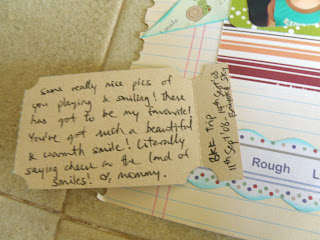 Some really nice pics of
you playing & smiling! there
has got to be my favorite!
You've got such a beautiful
& warmth smile! Literally
saying cheese in the land of
smiles! mommy.
BKK trip
11th Sep'08 - 14th Sep'08
Rough L